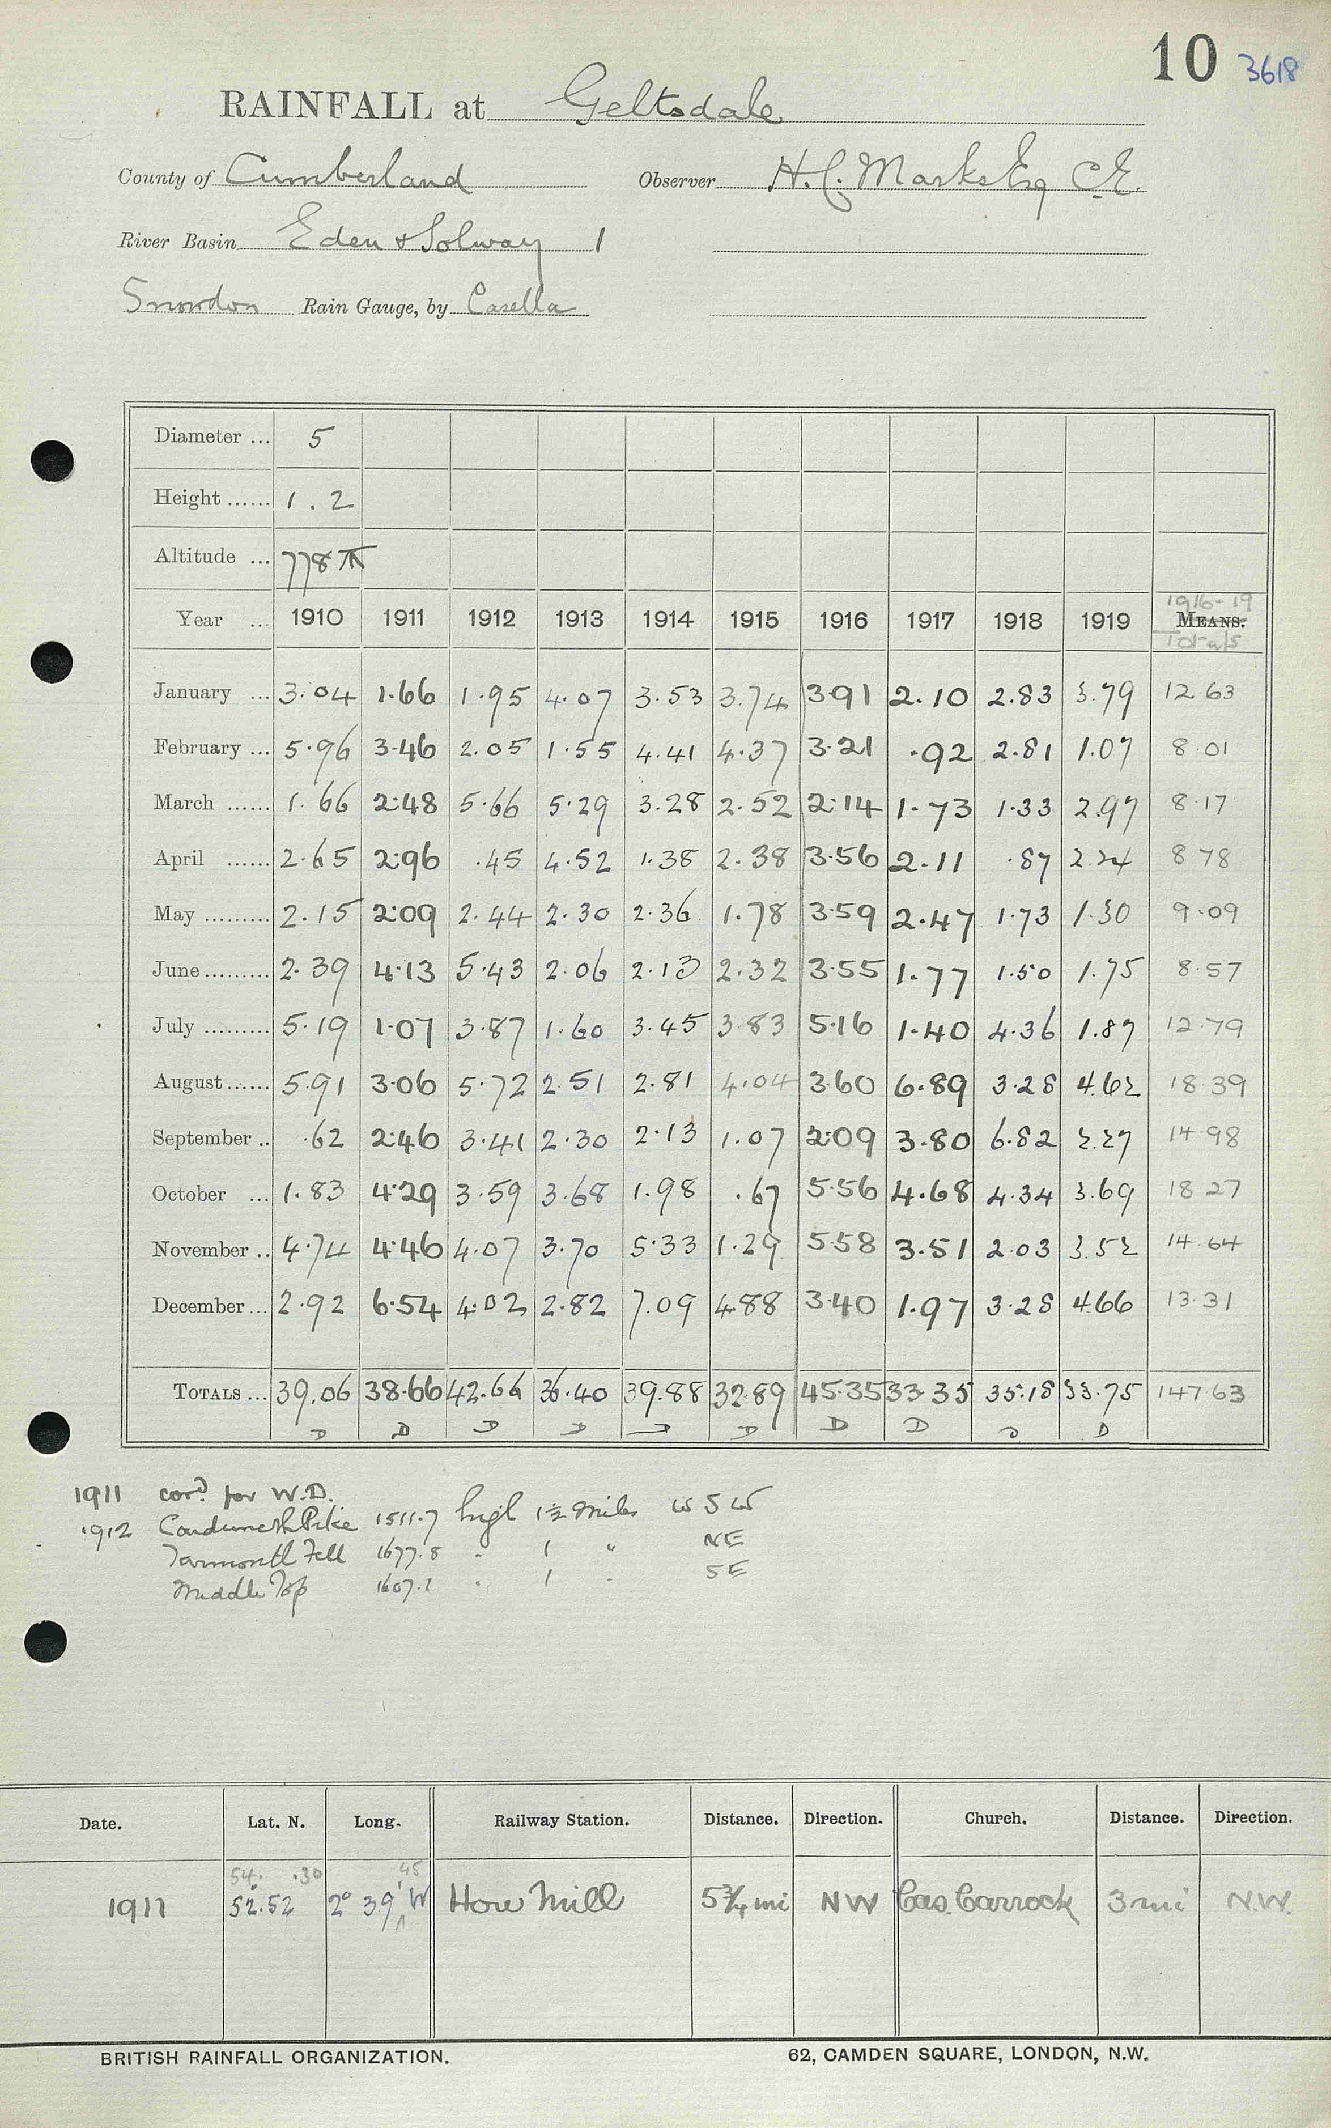 10 3618
RAINFALL at Geltsdale
County of Cumberland Observer H.C. Marks Esq C.E.
River Basin Eden & Solway 1
Snowdon Rain Gauge, by Casella
Diameter ... 5
Height ...... 1.2
Altitude ... 778 ft
1916-19
Year ... 1910 1911 1912 1913 1914 1915 1916 1917 1918 1919 MEANS.
Totals
January ... 3.04 1.66 1.95 4.07 3.53 3.74 3.91 2.10 2.83 3.79 12.63
February ... 5.96 3.46 2.05 1.55 4.41 4.37 3.21 .92 2.81 1.07 8.01
March ...... 1.66 2.48 5.66 5.29 3.28 2.52 2.14 1.73 1.33 2.97 8.17
April ...... 2.65 2.96 .45 4.52 1.38 2.38 3.56 2.11 .87 2.24 8.78
May ......... 2.15 2.09 2.44 2.30 2.36 1.78 3.59 2.47 1.73 1.30 9.09
June ......... 2.39 4.13 5.43 2.06 2.13 2.32 3.55 1.77 1.50 1.75 8.57
July ......... 5.19 1.07 3.87 1.60 3.45 3.83 5.16 1.40 4.36 1.87 12.79
August ...... 5.91 3.06 5.72 2.51 2.81 4.04 3.60 6.89 3.28 4.62 18.39
September .. .62 2.46 3.41 2.30 2.13 1.07 2.09 3.80 6.82 2.27 14.98
October ... 1.83 4.29 3.59 3.68 1.98 .67 5.56 4.68 4.34 3.69 18.27
November .. 4.74 4.46 4.07 3.70 5.33 1.29 5.58 3.51 2.03 3.52 14.64
December ... 2.92 6.54 4.02 2.82 7.09 4.88 3.40 1.97 3.28 4.66 13.31
TOTALS ... 39.06 38.66 42.66 36.40 39.88 32.89 45.35 33.35 35.18 33.75 147.63
D D D D D D D D D D
1911 cord. for W.D.
1912 Cardunneth Pike 1511.7 high 1½ miles WSW
Tarnmonth Fell 1677.8 " 1 " NE
Middle Top 1607.2 " 1 " SE
Date. Lat. N. Long. Railway Station. Distance. Direction. Church. Distance. Direction.
54. .30 45
1911 52.52 2° 39' W How Mill 5¾ mi NW Cas. Carrock 3 mi N.W.
BRITISH RAINFALL ORGANIZATION. 62, CAMDEN SQUARE, LONDON, N.W.